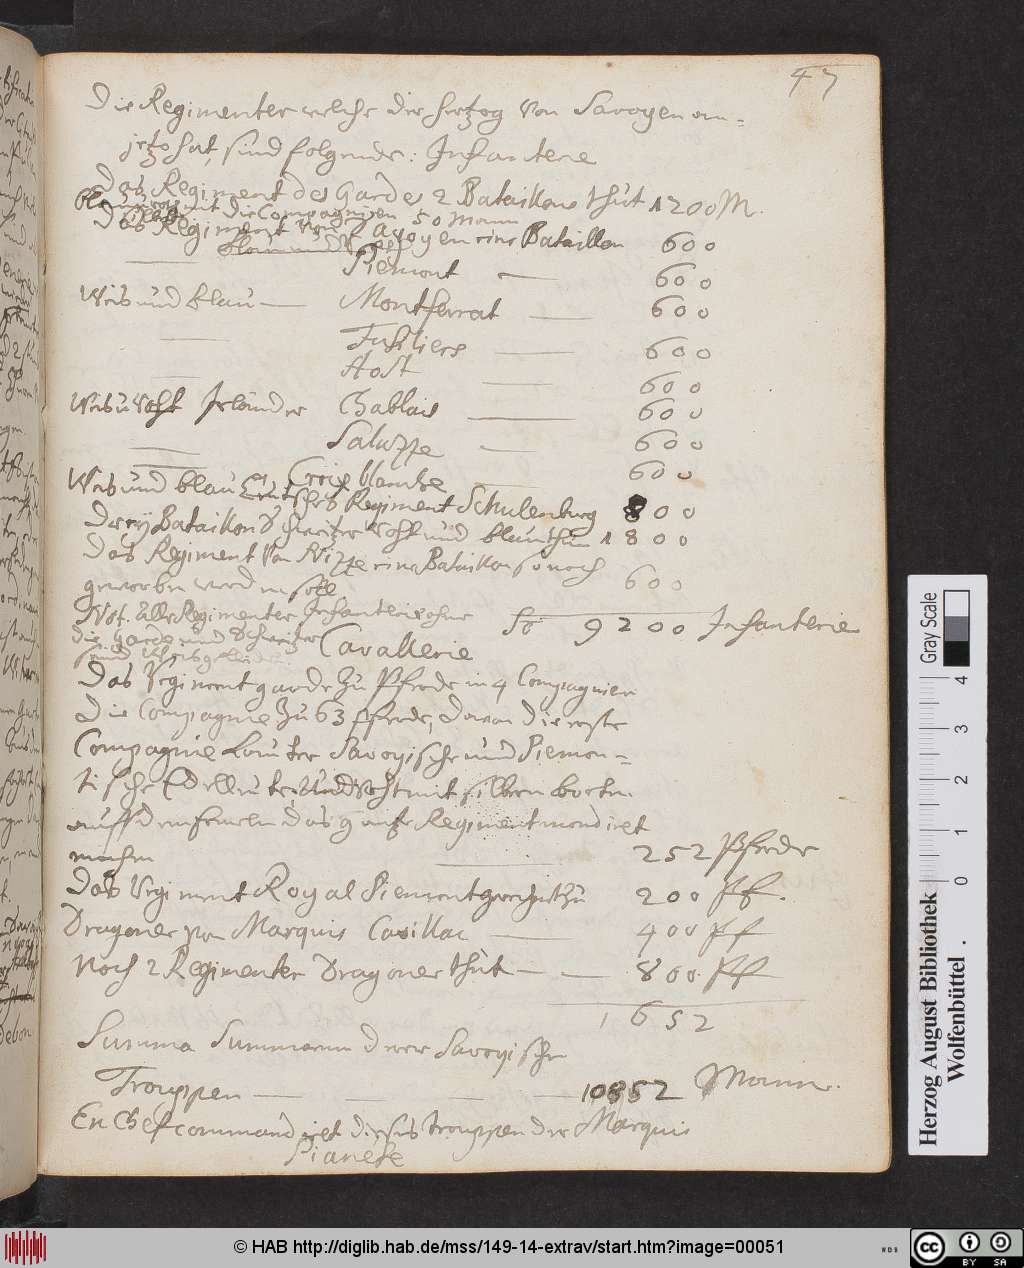 47
Die Regimenter welche der Hertzog von Savoyen an=
jetzo hat, sind folgende: Infanterie
Das Regiment des Gardes 2 Bataillons thut 1200 M.
blau mit die Compagnien 50 Mann
Das Regiment von Savoyen eine Bataillon 600
blau und
Piemont 600
Weis und blau Montferrat 600
Fusiliers 600
Aost 600
Weis u roht Irländer Chablais 600
Saluzze 600
Croix blanche 600
Weis und blau Teutsches Regiment Schulenburg 800
Drey Bataillon Schweitzer roht und blau thun 1800
Das Regiment von Nizze eine Bataillon so noch
geworben werden soll 600
Not. alle Regimenter Infanterie ohne
die Garde und Schweitzer
sind weis gekleidet
So 9200 Infanterie
Cavallerie
Das Regiment garde zu Pferde in 4 Compagnien
Die Compagnie zu 63 Pferde, davon die erste
Compagnie lauter Savoyische und Piemon=
tische Edelleute, und roht mit silbern borten
auff den ermeln das gantze Regiment mondiret
machen 252 Pferde
Das Regiment Royal Piemont gerechnet zu 200 Pf.
Dragoner von Marquis Cavillac 400 Pf
Noch 2 Regimenter Dragoner thut 800 Pf
1652
Summa Summarum derer Savoyische
Trouppen 10852 Mann.
En Chef commandiret dieses trouppen der Marquis
Pianese
Herzog August Bibliothek
Wolfenbüttel
Gray Scale
0 1 2 3 4
© HAB http://diglib.hab.de/mss/149-14-extrav/start.htm?image=00051
cc BY SA